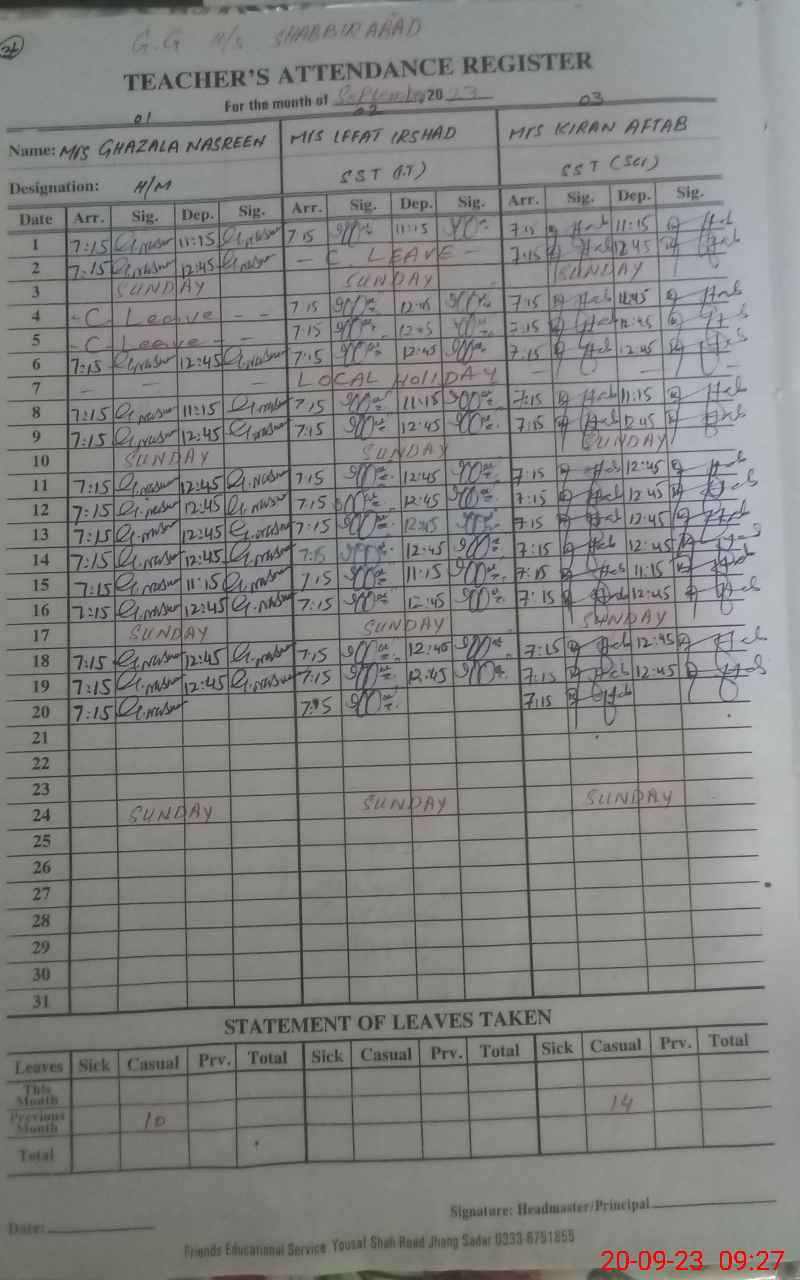 31
G.G M/S SHABBIR ABAD
TEACHER'S ATTENDANCE REGISTER
For the month of September 2023
01 02 03
Name: M/S GHAZALA NASREEN MIS IFFAT IRSHAD MIS KIRAN AFTAB
Designation: H/M SST (I.T) SST (SCI)
Date Arr. Sig. Dep. Sig. Arr. Sig. Dep. Sig. Arr. Sig. Dep. Sig.
1 7:15 G.nasreen 11:15 G.nasreen 7:15 11:15 7:15 11:15
2 7:15 G.nasreen 12:45 G.nasreen - C. LEAVE - 7:15 12:45
3 SUNDAY SUNDAY SUNDAY
4 - C. Leave - - 7:15 12:45 7:15 12:45
5 - C. Leave - - 7:15 12:45 7:15 12:45
6 7:15 G.nasreen 12:45 G.nasreen 7:15 12:45 7:15 12:45
7 - - - - LOCAL HOLIDAY - - - -
8 7:15 G.nasreen 11:15 G.nasreen 7:15 11:15 7:15 11:15
9 7:15 G.nasreen 12:45 G.nasreen 7:15 12:45 7:15 12:45
10 SUNDAY SUNDAY SUNDAY
11 7:15 G.nasreen 12:45 G.nasreen 7:15 12:45 7:15 12:45
12 7:15 G.nasreen 12:45 G.nasreen 7:15 12:45 7:15 12:45
13 7:15 G.nasreen 12:45 G.nasreen 7:15 12:45 7:15 12:45
14 7:15 G.nasreen 12:45 G.nasreen 7:15 12:45 7:15 12:45
15 7:15 G.nasreen 11:15 G.nasreen 7:15 11:15 7:15 11:15
16 7:15 G.nasreen 12:45 G.nasreen 7:15 12:45 7:15 12:45
17 SUNDAY SUNDAY SUNDAY
18 7:15 G.nasreen 12:45 G.nasreen 7:15 12:45 7:15 12:45
19 7:15 G.nasreen 12:45 G.nasreen 7:15 12:45 7:15 12:45
20 7:15 G.nasreen 7:15 7:15
21
22
23
24 SUNDAY SUNDAY SUNDAY
25
26
27
28
29
30
31
STATEMENT OF LEAVES TAKEN
Leaves Sick Casual Prv. Total Sick Casual Prv. Total Sick Casual Prv. Total
This Month
Previous Month 10 14
Total
Signature: Headmaster/Principal
Date:
Friends Educational Service Yousaf Shah Road Jhang Sadar 0333-6751855
20-09-23 09:27